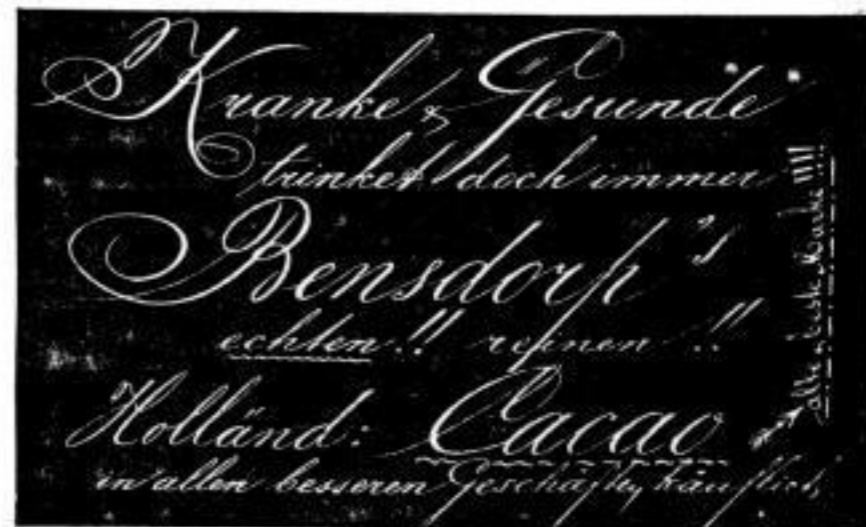 Kranke & Gesunde
trinket doch immer
Bensdorp's
echten!! reinen!!
Holländ: Cacao
in allen besseren Geschäften käuflich,
alte, beste Marke!!!!